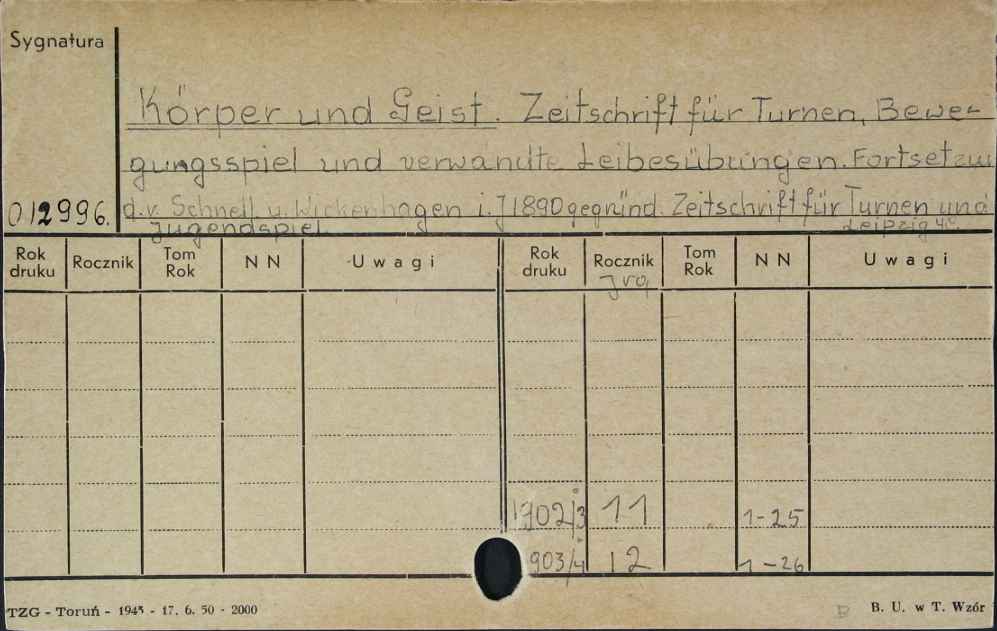 Sygnatura
Körper und Geist. Zeitschrift für Turnen, Bewe-
gungsspiel und verwandte Leibesübungen. Fortsetzun
012996. d. v. Schnell u. Wickenhagen i. J 1890 gegründ. Zeitschrift für Turnen und
Jugendspiel. Leipzig 4°.
Rok druku Rocznik Tom Rok N N Uwagi Rok druku Rocznik Tom Rok N N Uwagi
Jrg
1902/3 11 1-25
903/4 12 1-26
TZG - Toruń - 1945 - 17. 6. 50 - 2000 B B. U. w T. Wzór